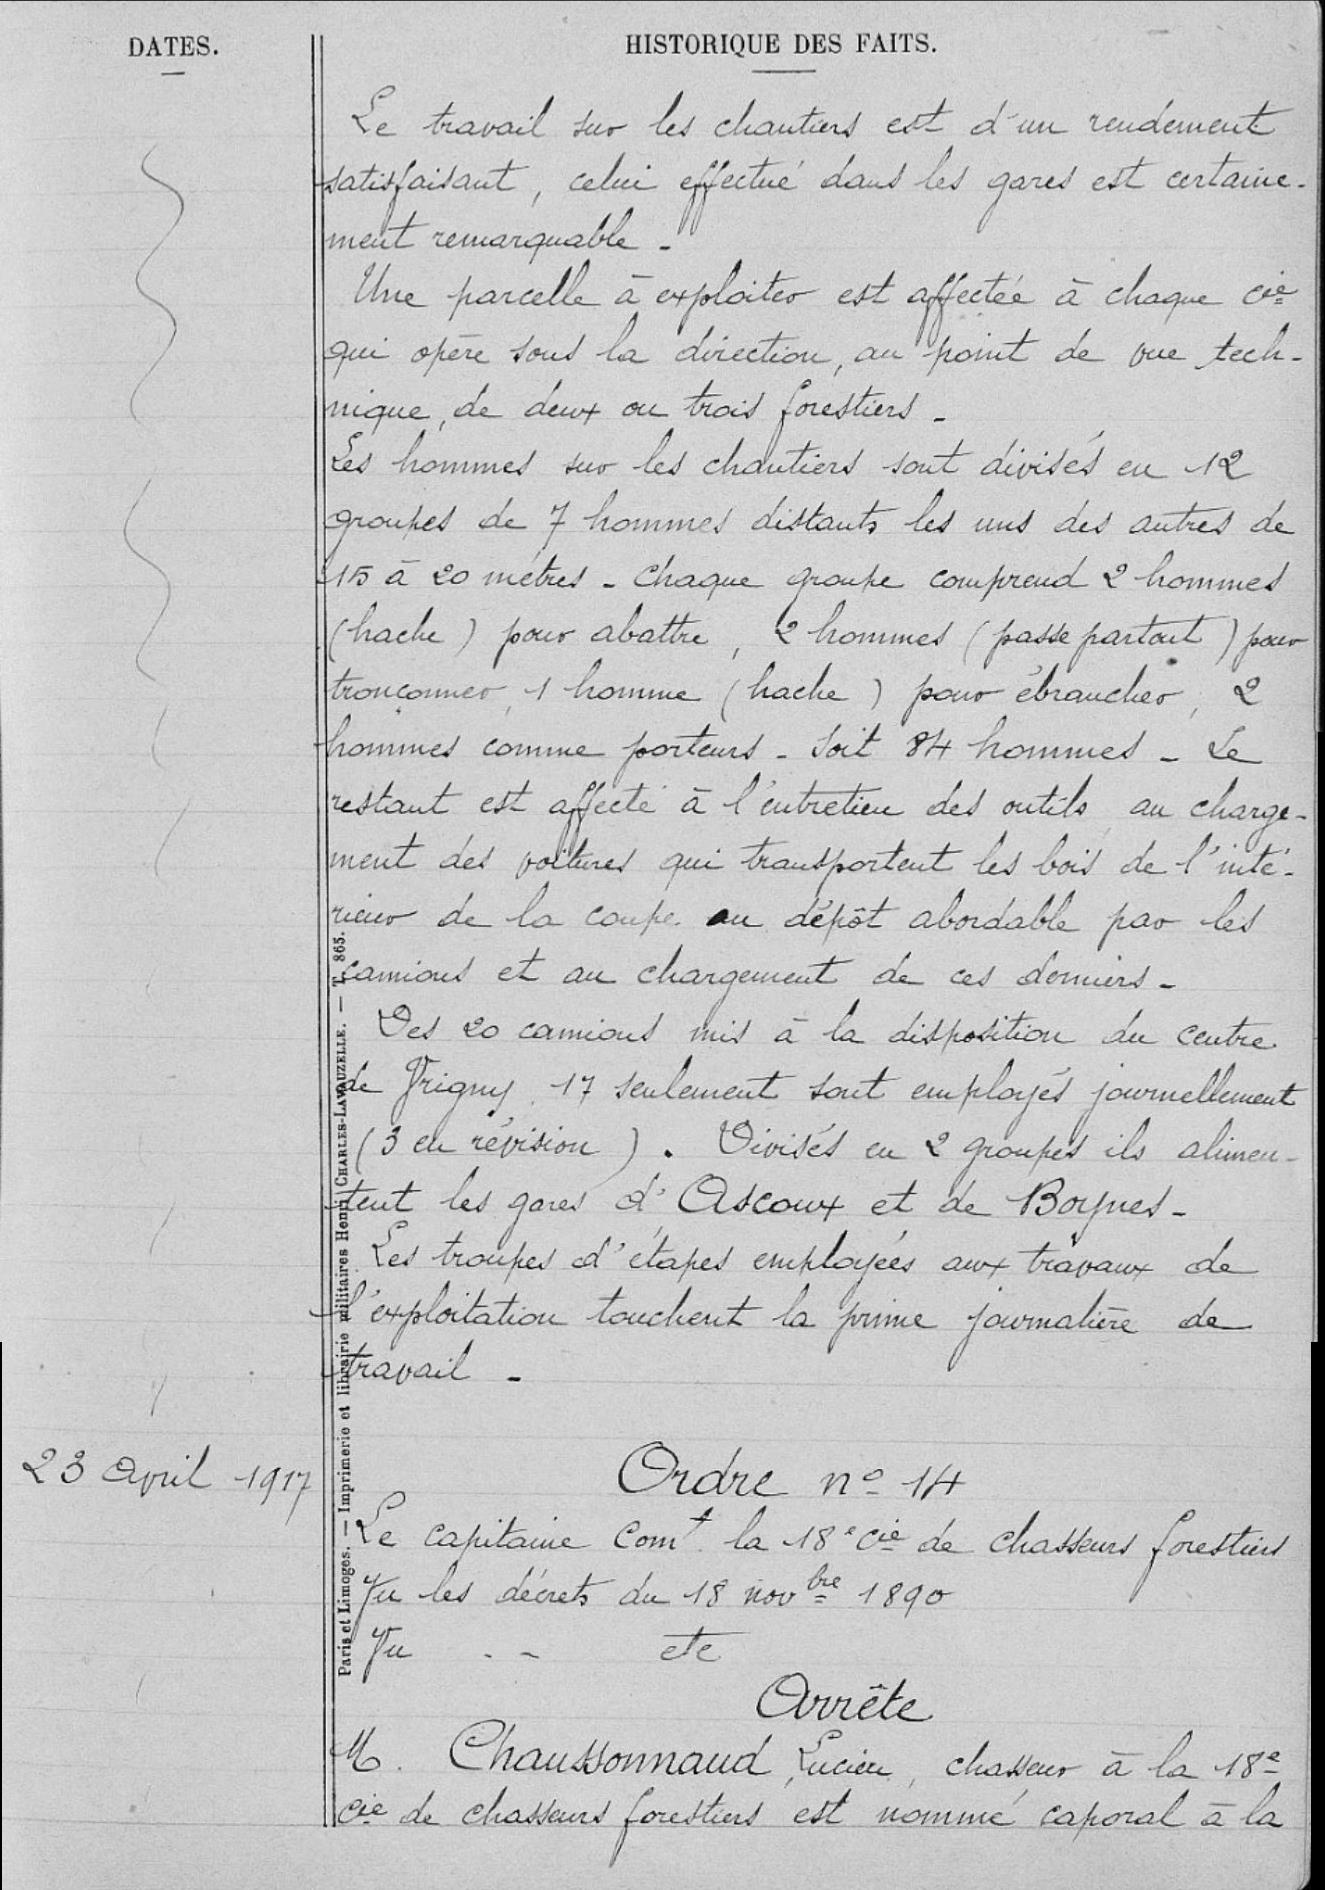 DATES.
HISTORIQUE DES FAITS.
Le travail sur les chantiers est d'un rendement
satisfaisant, celui effectué dans les gares est certaine-
ment remarquable -
Une parcelle à exploiter est affectée à chaque cie
qui opère sous la direction, au point de vue tech-
nique, de deux ou trois forestiers -
Les hommes sur les chantiers sont divisés en 12
groupes de 7 hommes distants les uns des autres de
15 à 20 mètres - Chaque groupe comprend 2 hommes
(hache) pour abattre, 2 hommes (passe partout) pour
tronçonner, 1 homme (hache) pour ébrancher, 2
hommes comme porteurs - soit 84 hommes - Le
restant est affecté à l'entretien des outils, au charge-
ment des voitures qui transportent les bois de l'inté-
rieur de la coupe au dépôt abordable par les
camions et au chargement de ces derniers -
Des 20 camions mis à la disposition du centre
de Vrigny, 17 seulement sont employés journellement
(3 en révision). Divisés en 2 groupes ils alimen-
tent les gares d'Ascoux et de Boynes -
Les troupes d'étapes employées aux travaux de
l'exploitation touchent la prime journalière de
travail -
23 Avril 1917
Ordre n° 14
Le capitaine Comt la 18e cie de chasseurs forestiers
Vu les décrets du 18 novbre 1890
Vu . . - etc
Arrête
M. Chaussonnaud, Lucien, chasseur à la 18e
cie de chasseurs forestiers est nommé caporal à la
Paris et Limoges. — Imprimerie et librairie militaires Henri CHARLES-LAVAUZELLE. — L. 865.